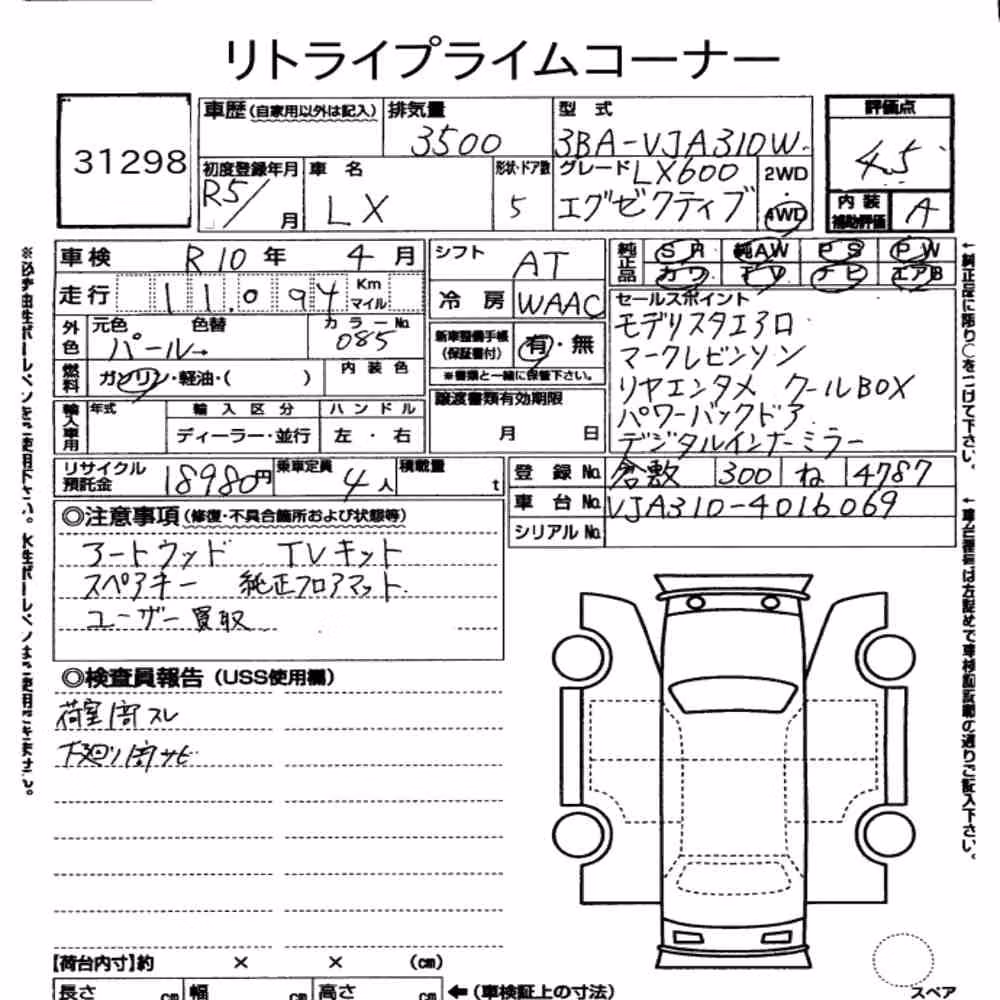 リトライプライムコーナー
31298
車歴(自家用以外は記入)
排気量
3500
型 式
3BA-VJA310W
評価点
4.5
初度登録年月
R5/ 月
車 名
LX
形状・ドア数
5
グレード LX600
エグゼクティブ
2WD
4WD
内 装
補助評価
A
車検 R10年 4月
シフト
AT
純正品
SR
純AW
PS
PW
カワ
TV
ナビ
エアB
走行 11.094 Km
マイル
冷 房
WAAC
セールスポイント
モデリスタエアロ
マークレビンソン
リヤエンタメ クールBOX
パワーバックドア
デジタルインナーミラー
外色
元色 色替
パール→
カラーNo.
085
新車整備手帳
(保証書付)
有・無
※書類と一緒に保管下さい。
燃料
ガソリン・軽油・( )
内 装 色
譲渡書類有効期限
月 日
輸入車用
年式
輸 入 区 分
ディーラー・並行
ハ ン ド ル
左 ・ 右
リサイクル
預託金
18980円
乗車定員
4人
積載量
t
登 録 No. 倉敷 300 ね 4787
車 台 No. VJA310-4016069
シリアル No.
◎注意事項(修復・不具合箇所および状態等)
アートウッド TVキット
スペアキー 純正フロアマット
ユーザー買取
◎検査員報告(USS使用欄)
荷室内スレ
下廻り内サビ
【荷台内寸】約 × × (cm)
長さ cm 幅 cm 高さ cm ←(車検証上の寸法)
スペア